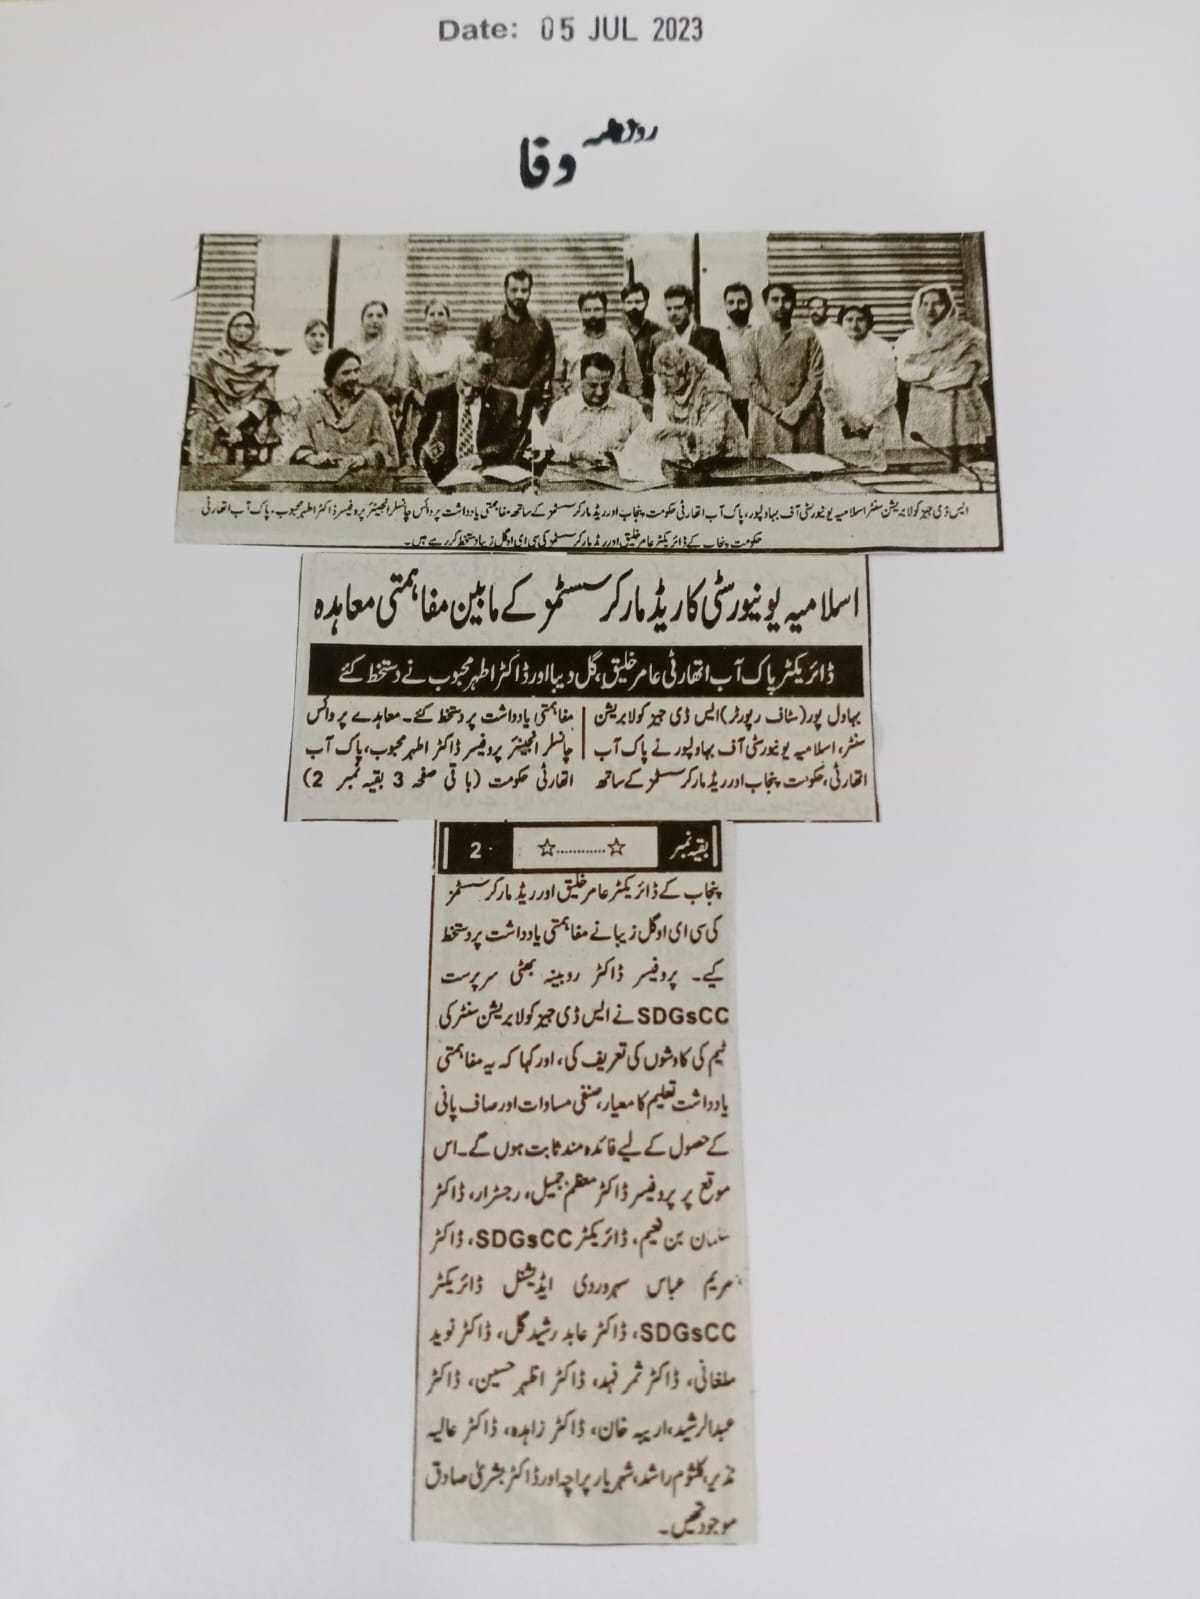 Date: 05 JUL 2023
روزنامہ
وفا
ایس ڈی جیز کولابریشن سنٹر اسلامیہ یونیورسٹی آف بہاولپور، پاک آب اتھارٹی حکومت پنجاب اور ریڈ مارکر سسٹمز کے ساتھ مفاہمتی یادداشت پر وائس چانسلر انجینئر پروفیسر ڈاکٹر اطہر محبوب، پاک آب اتھارٹی
حکومت پنجاب کے ڈائریکٹر عامر خلیق اور ریڈ مارکر سسٹمز کی سی ای او گل زیبا دستخط کر رہے ہیں۔
اسلامیہ یونیورسٹی کا ریڈ مارکر سسٹمز کے مابین مفاہمتی معاہدہ
ڈائریکٹر پاک آب اتھارٹی عامر خلیق، گل دیبا اور ڈاکٹر اطہر محبوب نے دستخط کئے
بہاول پور (سٹاف رپورٹر) ایس ڈی جیز کولابریشن
سنٹر، اسلامیہ یونیورسٹی آف بہاولپور نے پاک آب
اتھارٹی، حکومت پنجاب اور ریڈ مارکر سسٹمز کے ساتھ
مفاہمتی یادداشت پر دستخط کئے۔ معاہدے پر وائس
چانسلر انجینئر پروفیسر ڈاکٹر اطہر محبوب، پاک آب
اتھارٹی حکومت (باقی صفحہ 3 بقیہ نمبر 2)
بقیہ نمبر ☆............☆ 2
پنجاب کے ڈائریکٹر عامر خلیق اور ریڈ مارکر سسٹمز
کی سی ای او گل زیبا نے مفاہمتی یادداشت پر دستخط
کیے۔ پروفیسر ڈاکٹر روبینہ بھٹی سرپرست
SDGsCC نے ایس ڈی جیز کولابریشن سنٹر کی
ٹیم کی کاوشوں کی تعریف کی، اور کہا کہ یہ مفاہمتی
یادداشت تعلیم کا معیار، صنفی مساوات اور صاف پانی
کے حصول کے لیے فائدہ مند ثابت ہوں گے۔ اس
موقع پر پروفیسر ڈاکٹر معظم جمیل، رجسٹرار، ڈاکٹر
سلمان بن نعیم، ڈائریکٹر SDGsCC، ڈاکٹر
مریم عباس سہروردی ایڈیشنل ڈائریکٹر
SDGsCC، ڈاکٹر عابد رشید گل، ڈاکٹر نوید
ملغانی، ڈاکٹر ثمر فہد، ڈاکٹر اظہر حسین، ڈاکٹر
عبدالرشید، اریبہ خان، ڈاکٹر زاہدہ، ڈاکٹر عالیہ
نذیر، کلثوم راشد، شہریار پراچہ اور ڈاکٹر بشریٰ صادق
موجود تھیں۔